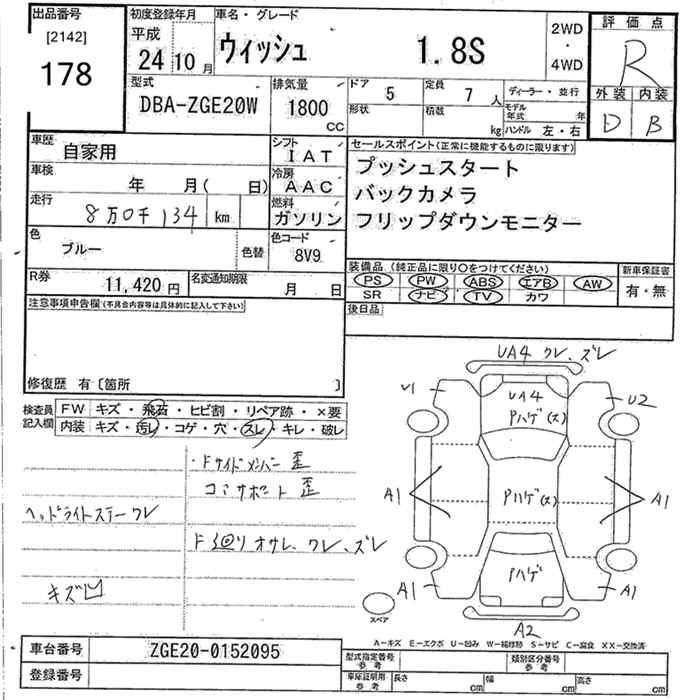 出品番号
[2142]
178
初度登録年月
平成
24年10月
車名・グレード
ウィッシュ 1.8S
2WD
・
4WD
評価点
R
外装 内装
D B
型式
DBA-ZGE20W
排気量
1800
CC
ドア 5
定員 7人
形状
積載 kg
ディーラー・並行
モデル年式 年
ハンドル 左・右
車歴 自家用
シフト IAT
車検 年 月( 日)
冷房 AAC
走行 8万0千134 km
燃料 ガソリン
色 ブルー 色替
色コード 8V9
R券 11,420円
名変通知期限 月 日
セールスポイント(正常に機能するものに限ります)
プッシュスタート
バックカメラ
フリップダウンモニター
装備品(純正品に限り○をつけてください)
PS PW ABS エアB AW
SR ナビ TV カワ
新車保証書
有・無
後日品
注意事項申告欄(不具合内容等は具体的に記入して下さい)
修復歴 有〔箇所 〕
検査員記入欄
FW キズ・飛石・ヒビ割・リペア跡・×要
内装 キズ・汚レ・コゲ・穴・スレ・キレ・破レ
・Fサイドメンバー歪
コアサポート歪
ヘッドライトステークレ
F廻りオサレ、クレ、ズレ
キズ凹
UA4 クレ、ズレ
U1
UA4
Pハゲ(ス)
U2
A1
Pハゲ(ス)
A1
A1
Pハゲ
A1
A2
スペア
A-キズ E-エクボ U-凹み W-補修跡 S-サビ C-腐食 XX-交換済
車台番号 ZGE20-0152095
登録番号
型式指定番号参考
類別区分番号参考
車庫証明用参考
長さ cm
幅 cm
高さ cm